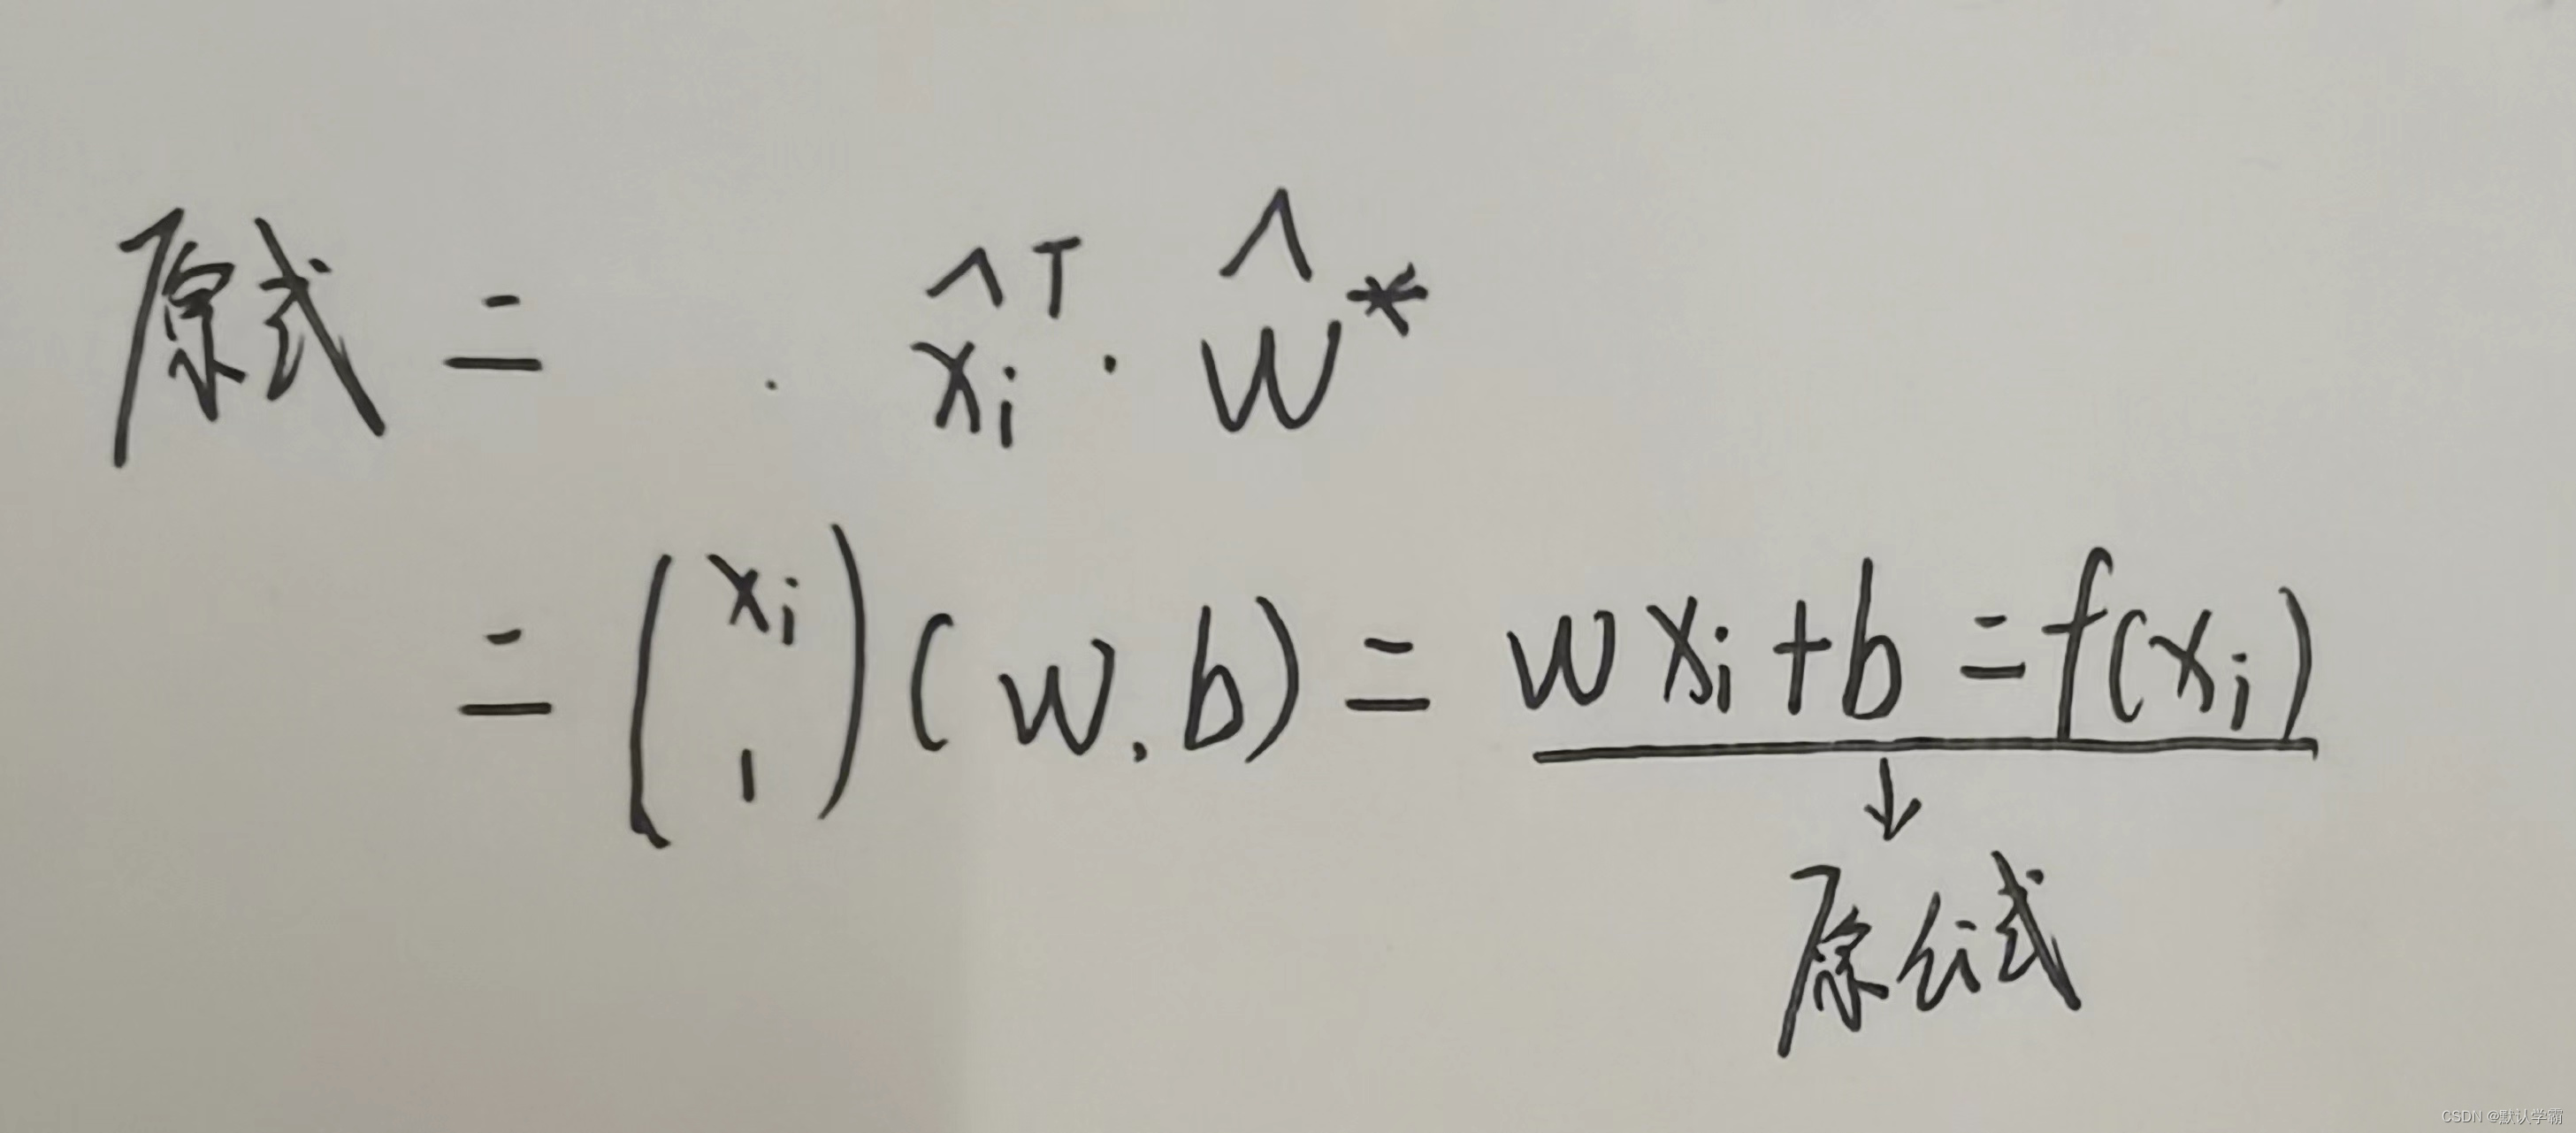 原式 = x̂ᵢᵀ · ŵ*
= (xᵢ 1) (w, b) = wxᵢ + b = f(xᵢ)
↓
原公式
CSDN @默认学霸